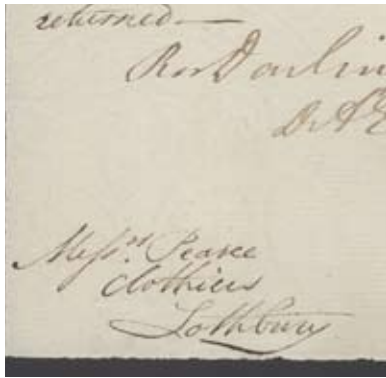 returned —
Ra Darlin
D A
Mess.rs Pearce
Clothiers
Lothbury